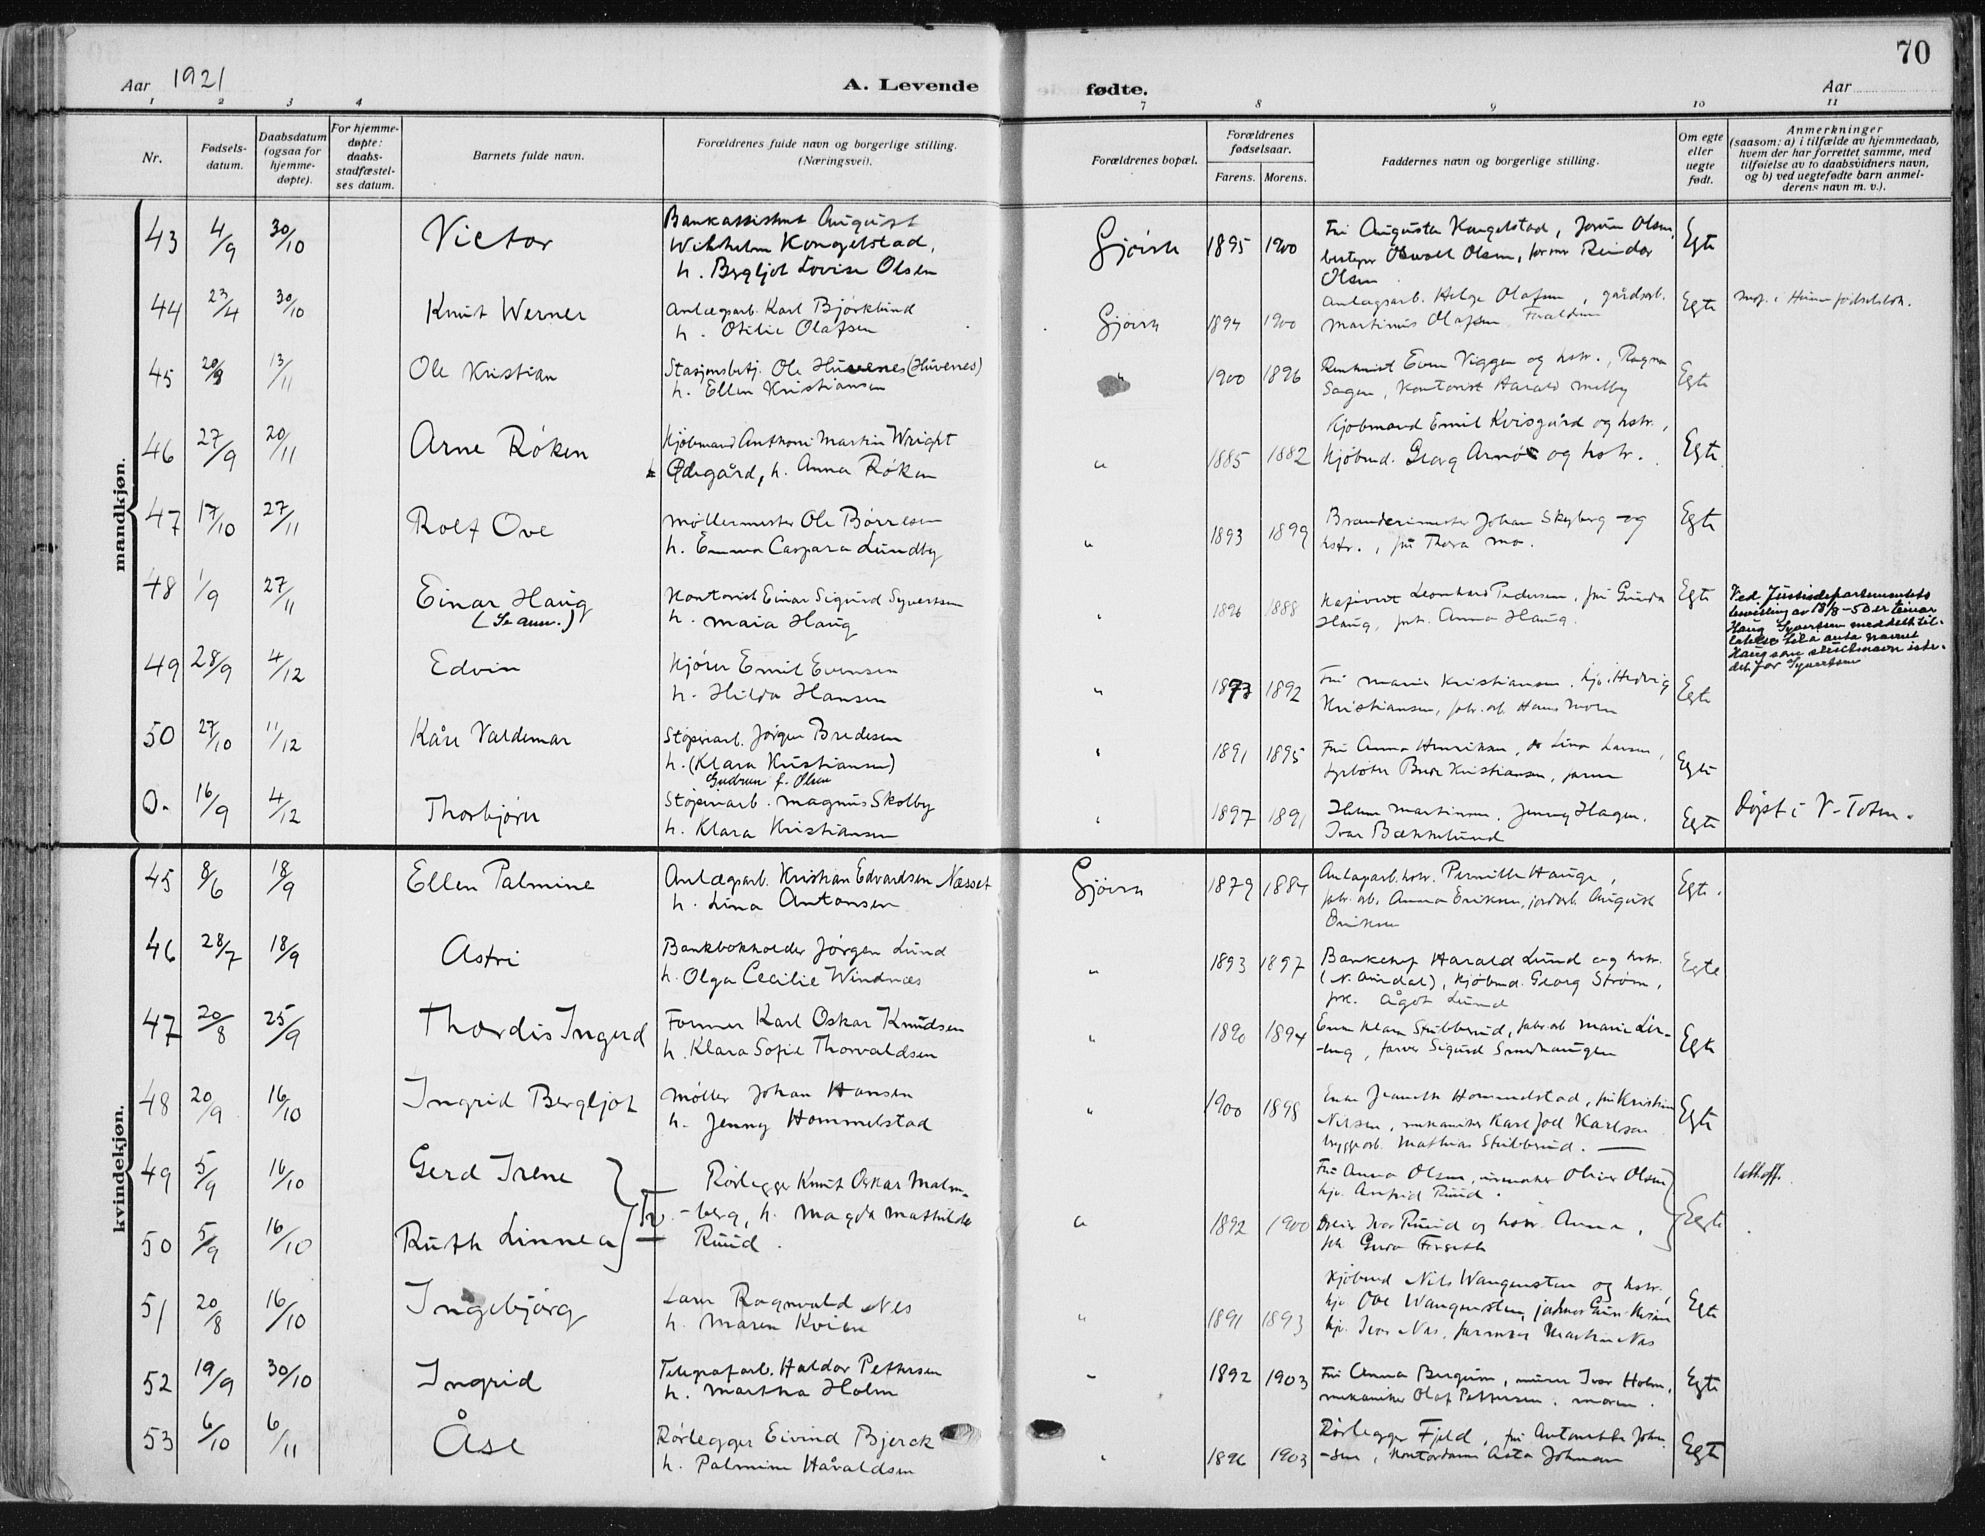 70
Aar 1921
A. Levende
fødte.
Aar
1 2 3 4 7 8 9 10 11
Nr.
Fødsels-
datum.
Daabsdatum
(ogsaa for
hjemme-
døpte).
For hjemme-
døpte:
daabs-
stadfæstel-
ses datum.
Barnets fulde navn.
Forældrenes fulde navn og borgerlige stilling.
(Næringsvei).
Forældrenes bopæl.
Forældrenes
fødselsaar.
Farens. Morens.
Faddernes navn og borgerlige stilling.
Om egte
eller
uegte
født.
Anmerkninger
(saasom: a) i tilfælde av hjemmedaab,
hvem der har forrettet samme, med
tilføielse av to daabsvidners navn,
og b) ved uegtefødte barn anmel-
derens navn m. v.).
mandkjøn.
43 4/9 30/10 Victor
Bankassistent August
Wilhelm Kongelstad,
h. Bergljot Lovise Olsen
Gjøvik 1895 1900
Fru Augusta Kongelstad, Jorun Olsen,
bestyrer Oswald Olsen, former Reidar
Olsen
Egte
44 23/4 30/10 Knut Werner
Anlægsarb. Karl Bjørklund
h. Otilie Olafsen
Gjøvik 1894 1900
Anlægsarb. Helge Olafsen, gårdsarb.
Martinus Olafsen Forældrene
Egte
45 20/9 13/11 Ole Kristian
Stasjonsbetj. Ole Huvenes (Huvenes)
h. Ellen Kristiansen
" 1900 1896
Even Viggen og hstr., Ragna
Sagen, Kontorist Harald Melby
Egte
46 27/9 20/11 Arne Røken
Kjøbmand Anthoni Martin Wright
Ødegård, h. Anna Røken
" 1885 1882
Kjøbmand Emil Kvisgård og hstr.,
Kjøbmd. Georg Arnø og hstr.
Egte
47 17/10 27/11 Rolf Ove
Møllermester Ole Børresen
h. Emma Caspara Lundby
" 1893 1899
Brænderimester Johan Skyberg og
hstr., fru Thora Mo.
Egte
48 1/9 27/11 Einar Haug
(Se anm.)
Kontorist Einar Sigurd Syvertsen
h. Maia Haug
" 1896 1888
Leonhard Pedersen, fru Gunda
Haug, frk. Anna Haug.
Egte
Ved Justisdepartementets
bevilling av 18/8-50 er Einar
Haug Syvertsen meddelt til-
latelse til å anta navnet
Haug som slektsnavn iste-
det for Syvertsen
49 28/9 4/12 Edvin
Kjører Emil Evensen
h. Hilda Hansen
" 1893 1892
Fru Marie Kristiansen, hjv. Hedvig
Kristiansen, fabr. arb. Hans Moen
Egte
50 27/10 11/12 Kåre Valdemar
Støperiarb. Jørgen Bredesen
h. (Klara Kristiansen)
Gudrun f. Olsen
" 1891 1895
Fru Anna Henriksen, Lina Larsen,
Kristiansen, faren
Egte
0. 16/9 4/12 Thorbjørn
Støperiarb. Magnus Skolby
h. Klara Kristiansen
" 1897 1891
Martinsen, Jenny Hagen,
Ivar Bækkelund
Egte
Døpt i V-Toten.
kvindekjøn.
45 8/6 18/9 Ellen Palmine
Anlægsarb. Kristian Edvardsen Næsset
h. Lina Antonsen
Gjøvik 1879 1884
Anlægsarb. hstr. Pernille Hauge,
fabr. arb. Anna Eriksen, jordarb. August
Eriksen
Egte.
46 28/7 18/9 Astri
Bankbokholder Jørgen Lund
h. Olga Cecilie Windnæs
" 1893 1897
Harald Lund og hstr.
(N. Aurdal), Kjøbmd. Georg Strøm,
frk. Ågot Lund
Egte
47 20/8 25/9 Thordis Ingerd
Former Karl Oskar Knudsen
h. Klara Sofie Thorvaldsen
" 1890 1894
Enke Klara Stubberud, fabr. arb. Marie Lin-
-eng, farver Sigurd Smedhaugen
Egte
48 20/9 16/10 Ingrid Bergljot
Møller Johan Hansen
h. Jenny Hommelstad
" 1900 1898
Enke Jeanette Hommelstad, fru Kristine
Nilsen, mekaniker Karl Joel Karlsen
bryggearb. Mathias Stubberud.
Egte
49 5/9 16/10 Gerd Irene
50 5/9 16/10 Ruth Linnea
Tv.
Rørlegger Knut Oskar Malm-
-berg, h. Magda Mathilde
Ruud.
" 1892 1900
Fru Anna Olsen, urmaker Oliver Olsen
hjv. Astrid Ruud.
Ivar Ruud og hstr. Anna,
frk. Forseth
Egte
51 20/8 16/10 Ingebjørg
Ragnvald Nes
h. Maren Kvien
" 1891 1893
Kjøbmd Nils Wangensten og hstr,
hjv. Ove Wangensten,
Ivar Nes, Martin Nes
Egte
52 19/9 30/10 Ingrid
Telegrafarb. Haldor Pettersen
h. Martha Holm
" 1892 1903
Fru Anna Bergum, murer Ivar Holm,
mekaniker Olaf Pettersen. moren.
Egte
53 6/10 6/11 Åse
Rørlegger Eivind Bjerck
h. Palmine Håvaldsen
" 1896 1903
Rørlegger Fjeld, fru Antonette John-
-sen, Kontordame Asta Johnsen
Egte